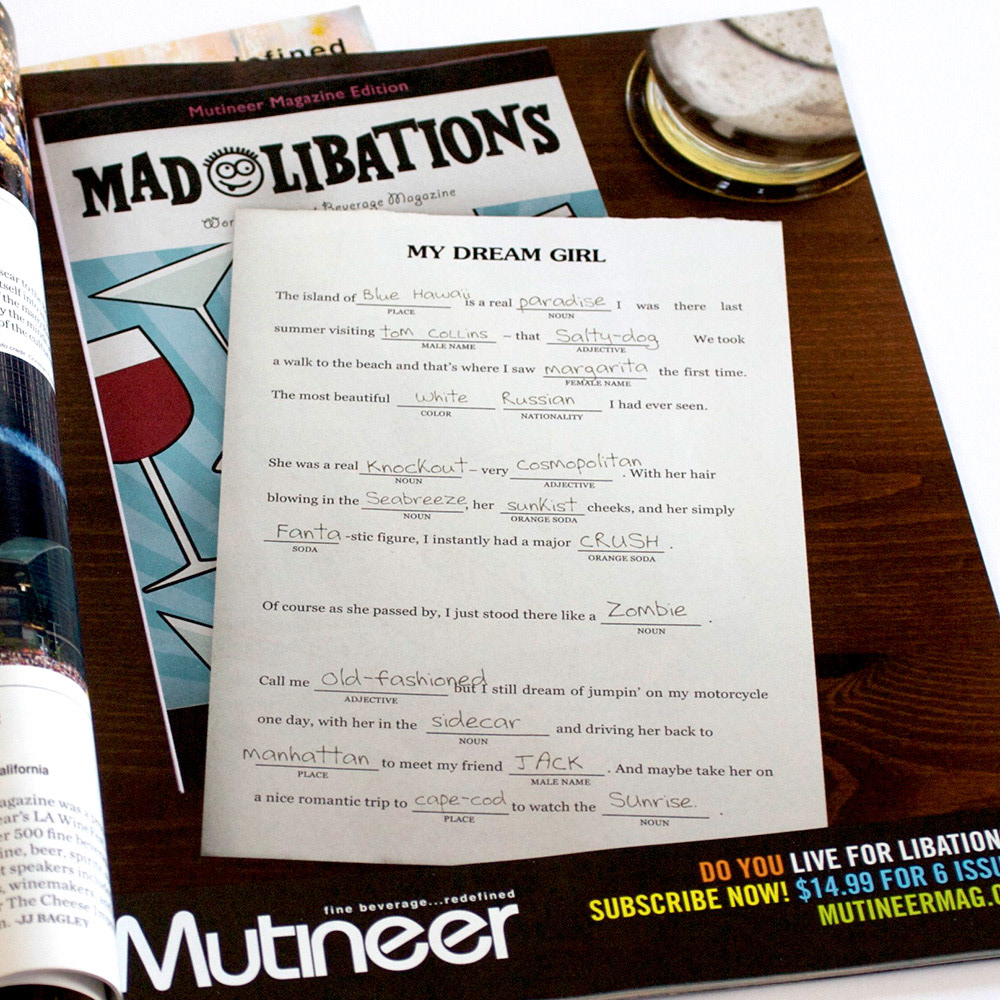 Mutineer Magazine Edition
MAD LIBATIONS
Beverage Magazine
MY DREAM GIRL
The island of Blue Hawaii is a real paradise I was there last
PLACE NOUN
summer visiting tom collins – that Salty-dog We took
MALE NAME ADJECTIVE
a walk to the beach and that's where I saw margarita the first time.
FEMALE NAME
The most beautiful white Russian I had ever seen.
COLOR NATIONALITY
She was a real knockout – very cosmopolitan . With her hair
NOUN ADJECTIVE
blowing in the Seabreeze, her sunkist cheeks, and her simply
NOUN ORANGE SODA
Fanta -stic figure, I instantly had a major CRUSH .
SODA ORANGE SODA
Of course as she passed by, I just stood there like a Zombie .
NOUN
Call me old-fashioned but I still dream of jumpin' on my motorcycle
ADJECTIVE
one day, with her in the sidecar and driving her back to
NOUN
manhattan to meet my friend JACK . And maybe take her on
PLACE MALE NAME
a nice romantic trip to cape-cod to watch the Sunrise. .
PLACE NOUN
DO YOU LIVE FOR LIBATION
SUBSCRIBE NOW! $14.99 FOR 6 ISSU
MUTINEERMAG.
fine beverage...redefined
Mutineer
alifornia
agazine was
ear's LA Wine
er 500 fine
ine, beer,
t speakers
, winemakers
The Cheese
-JJ BAGLEY